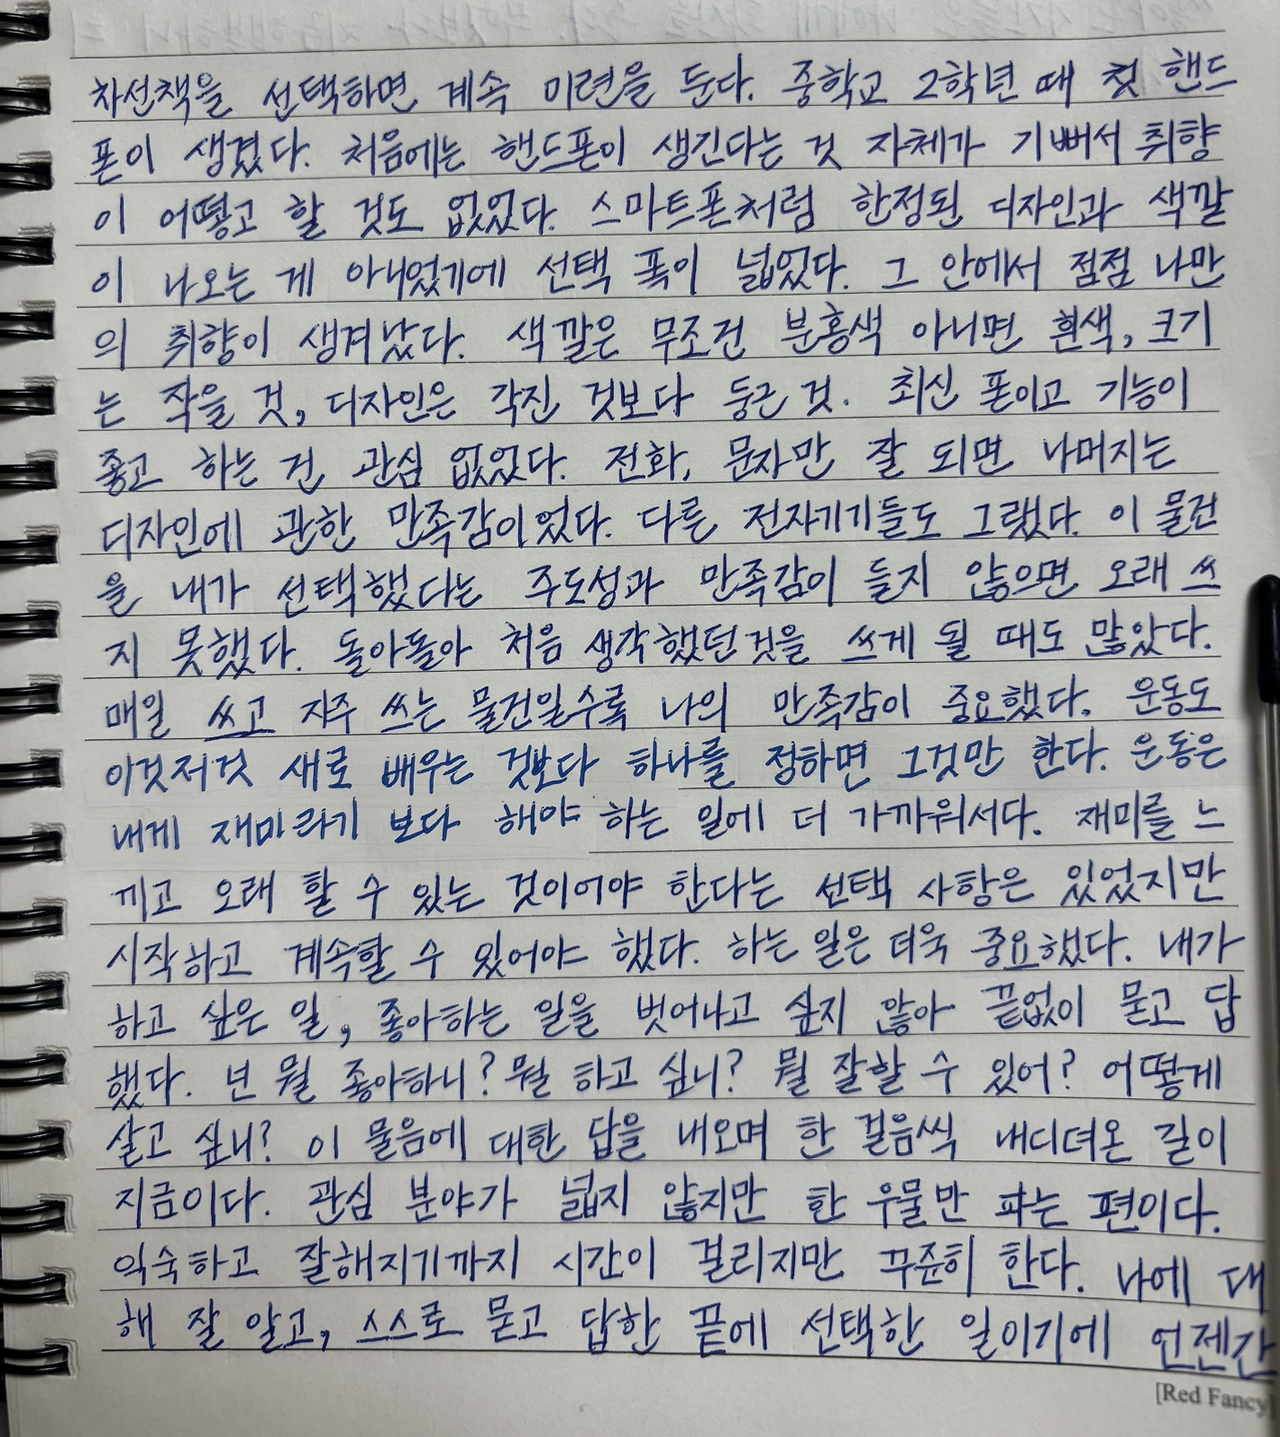 차선책을 선택하면 계속 미련을 둔다. 중학교 2학년 때 첫 핸드
폰이 생겼다. 처음에는 핸드폰이 생긴다는 것 자체가 기뻐서 취향
이 어떻고 할 것도 없었다. 스마트폰처럼 한정된 디자인과 색깔
이 나오는 게 아니었기에 선택 폭이 넓었다. 그 안에서 점점 나만
의 취향이 생겨났다. 색깔은 무조건 분홍색 아니면 흰색, 크기
는 작을 것, 디자인은 각진 것보다 둥근 것. 최신 폰이고 기능이
좋고 하는 건 관심 없었다. 전화, 문자만 잘 되면 나머지는
디자인에 관한 만족감이었다. 다른 전자기기들도 그랬다. 이 물건
을 내가 선택했다는 주도성과 만족감이 들지 않으면 오래 쓰
지 못했다. 돌아돌아 처음 생각했던것을 쓰게 될 때도 많았다.
매일 쓰고 자주 쓰는 물건일수록 나의 만족감이 중요했다. 운동도
이것저것 새로 배우는 것보다 하나를 정하면 그것만 한다. 운동은
내게 재미라기 보다 해야 하는 일에 더 가까워서다. 재미를 느
끼고 오래 할 수 있는 것이어야 한다는 선택 사항은 있었지만
시작하고 계속할 수 있어야 했다. 하는 일은 더욱 중요했다. 내가
하고 싶은 일, 좋아하는 일을 벗어나고 싶지 않아 끝없이 묻고 답
했다. 넌 뭘 좋아하니? 뭘 하고 싶니? 뭘 잘할 수 있어? 어떻게
살고 싶니? 이 물음에 대한 답을 내오며 한 걸음씩 내디뎌온 길이
지금이다. 관심 분야가 넓지 않지만 한 우물만 파는 편이다.
익숙하고 잘해지기까지 시간이 걸리지만 꾸준히 한다. 나에 대
해 잘 알고, 스스로 묻고 답한 끝에 선택한 일이기에 언젠간
[Red Fancy]